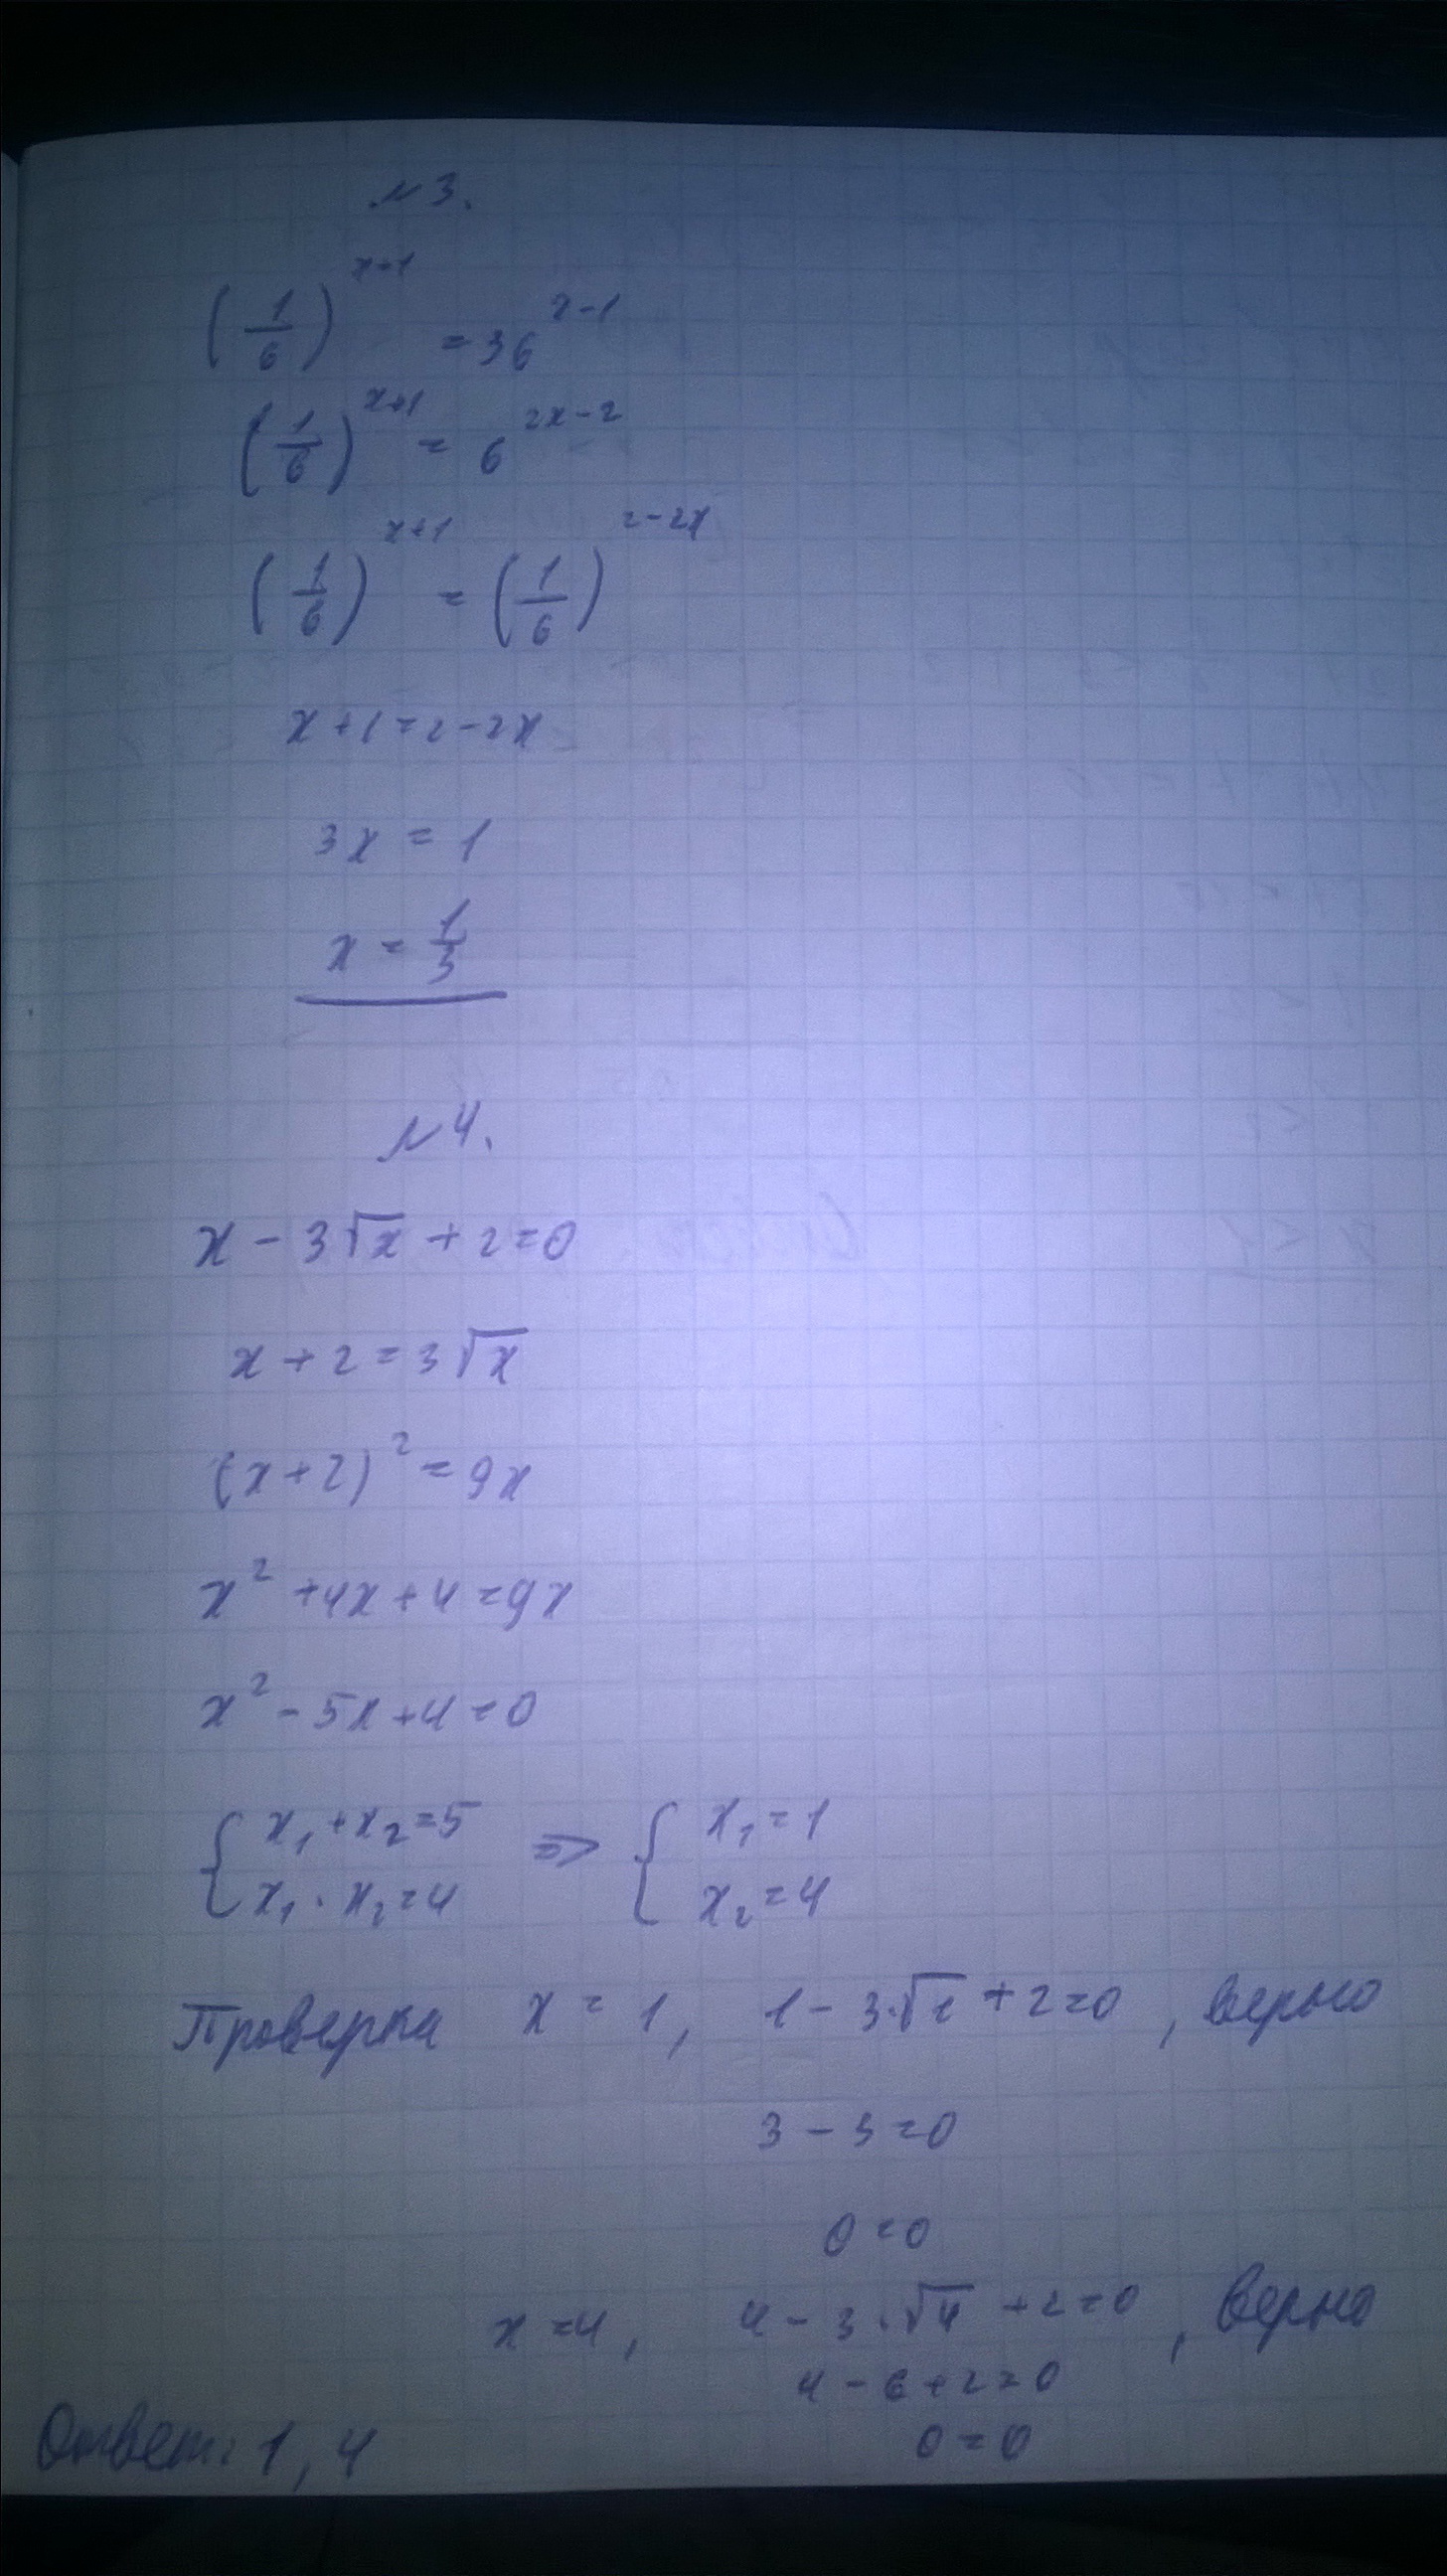 №3.
(1/6)^(x+1) = 36^(x-1)
(1/6)^(x+1) = 6^(2x-2)
(1/6)^(x+1) = (1/6)^(2-2x)
x+1=2-2x
3x = 1
x = 1/3
№4.
x - 3√x + 2=0
x + 2 = 3√x
(x+2)² = 9x
x² +4x+4=9x
x² - 5x+4=0
{ x₁+x₂=5 ⇒ { x₁=1
x₁·x₂=4 x₂=4
Проверка x = 1, 1 - 3·√1 + 2=0, верно
3 - 3 =0
0=0
x=4, 4 - 3·√4 +2=0, верно
4 - 6 +2=0
0=0
Ответ: 1, 4